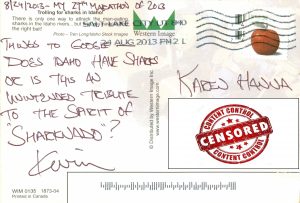 8/24/2013 - MY 29TH MARATHON OF 2013
Trolling for sharks in Idaho!
There is only one way to attract the man-eating
sharks in the Idaho rivers
the right bait!
Photo - Tom Long/Nature Stock Images
SALT LAKE CITY UT 840
24 AUG 2013 PM 2 L
Western Image
THANKS TO GOOGLE
DOES IDAHO HAVE SHARKS
OR IS THIS AN
UNINTENDED TRIBUTE
TO THE SPIRIT OF
"SHARKNADO"?
Kevin
© Distributed by Western Image Inc.
www.westernimage.com
KAREN HANNA
CONTENT CONTROL
CENSORED
CONTENT CONTROL
WIM 0135 1873-04
Printed in Canada